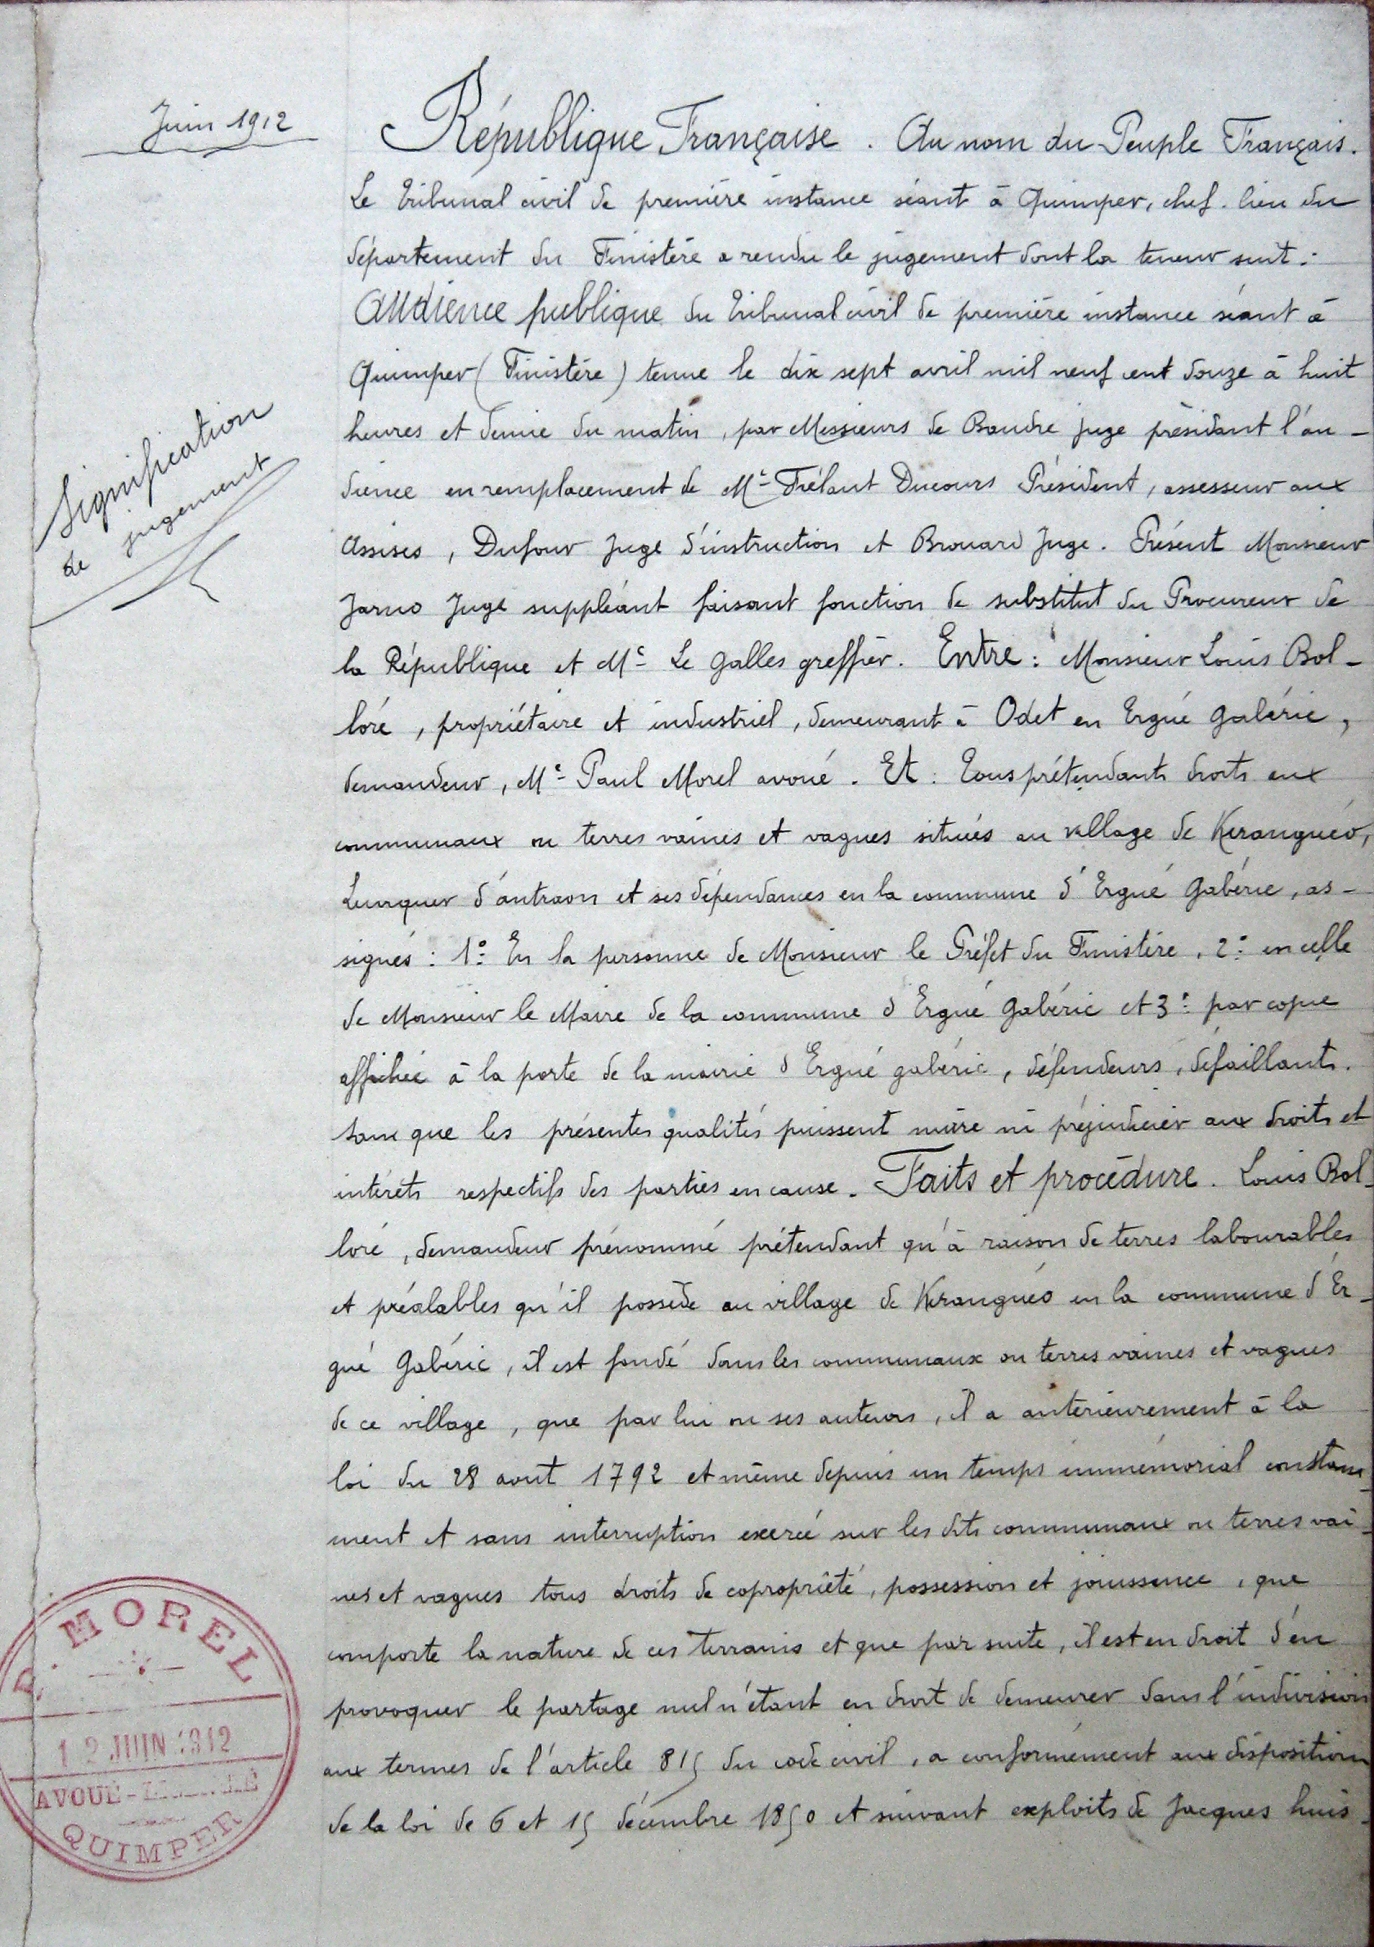 Juin 1912
République Française. Au nom du Peuple Français.
Le tribunal civil de première instance séant à Quimper, chef-lieu du
département du Finistère a rendu le jugement dont la teneur suit :
Audience publique du tribunal civil de première instance séant à
Quimper (Finistère) tenue le dix sept avril mil neuf cent douze à huit
heures et demie du matin, par Messieurs de Baudre juge présidant l'au-
dience en remplacement de Mr Frélaut Ducours Président, assesseur aux
Assises, Dufour Juge d'instruction et Brouard Juge. Présent Monsieur
Jarno Juge suppléant faisant fonction de substitut du Procureur de
la République et Me Le Galles greffier. Entre : Monsieur Louis Bol-
loré, propriétaire et industriel, demeurant à Odet en Ergué Gabéric,
demandeur, Me Paul Morel avoué. Et : Tous prétendants droits aux
communaux ou terres vaines et vagues situés au village de Kerangueo,
Lunquer d'antraon et ses dépendances en la commune d'Ergué Gabéric, as-
signés : 1° En la personne de Monsieur le Préfet du Finistère, 2° en celle
de Monsieur le Maire de la commune d'Ergué Gabéric et 3° par copie
affichée à la porte de la mairie d'Ergué gabéric, défendeurs, défaillants.
sans que les présentes qualités puissent nuire ni préjudicier aux droits et
intérêts respectifs des parties en cause. Faits et procédure. Louis Bol-
loré, demandeur prénommé prétendant qu'à raison de terres labourables
et préalables qu'il possède au village de Kerangueo en la commune d'Er-
gué Gabéric, il est fondé dans les communaux ou terres vaines et vagues
de ce village, que par lui ou ses auteurs, il a antérieurement à la
loi du 28 aout 1792 et même depuis un temps immémorial constam-
ment et sans interruption exercé sur les dits communaux ou terres vai-
nes et vagues tous droits de copropriété, possession et jouissance, que
comporte la nature de ces terrains et que par suite, il est en droit d'en
provoquer le partage nul n'étant en droit de demeurer dans l'indivision
aux termes de l'article 815 du code civil, a conformément aux disposition
de la loi de 6 et 15 décembre 1850 et suivant exploits de Jacques huis-
Signification
de jugement
P. MOREL
12 JUIN 1912
AVOUÉ-LICENCIÉ
QUIMPER